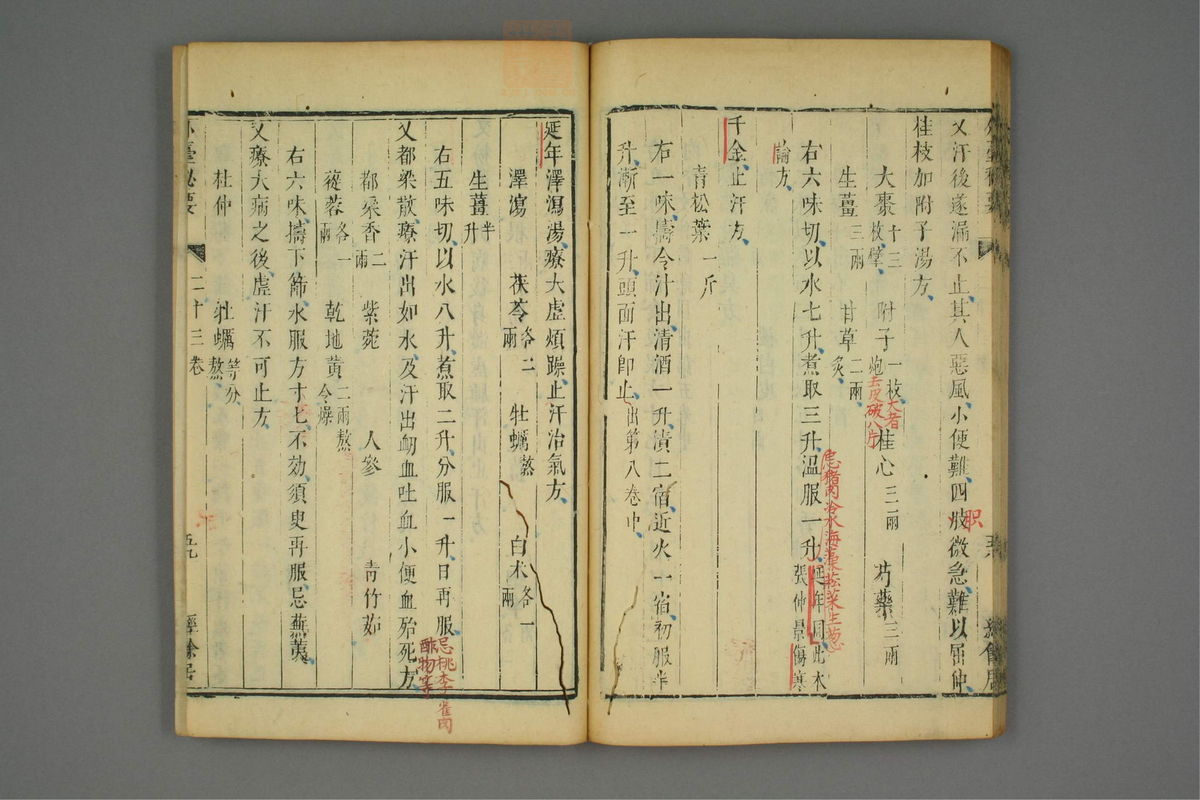 又汗後遂漏不止其人惡風小便難四肢微急難以屈伸
桂枝加附子湯方
大棗十三枚擘 附子一枚炮 桂心三兩 芍藥三兩
去皮破八片
大者
生薑三兩 甘草二兩炙
右六味切以水七升煮取三升溫服一升延年同此本張仲景傷寒
忌猪肉冷水海藻菘菜生葱
論方
千金止汗方
青松葉一斤
右一味擣令汁出清酒一升漬二宿近火一宿初服半
升漸至一升頭面汗即止出第八卷中
延年澤瀉湯療大虛煩躁止汗治氣方
澤瀉 茯苓各二兩 牡蠣熬 白术各一兩
生薑半升
右五味切以水八升煮取二升分服一升日再服
忌桃李雀肉
酢物等
又都梁散療汗出如水及汗出衂血吐血小便血殆死方
都梁香二兩 紫菀 人參 青竹茹
蓯蓉各一兩 乾地黃二兩熬令燥
右六味擣下篩水服方寸七不効須臾再服忌蕪荑
又療大病之後虛汗不可止方
杜仲 牡蠣等分熬
外臺秘要 二十三卷 五九 經餘居